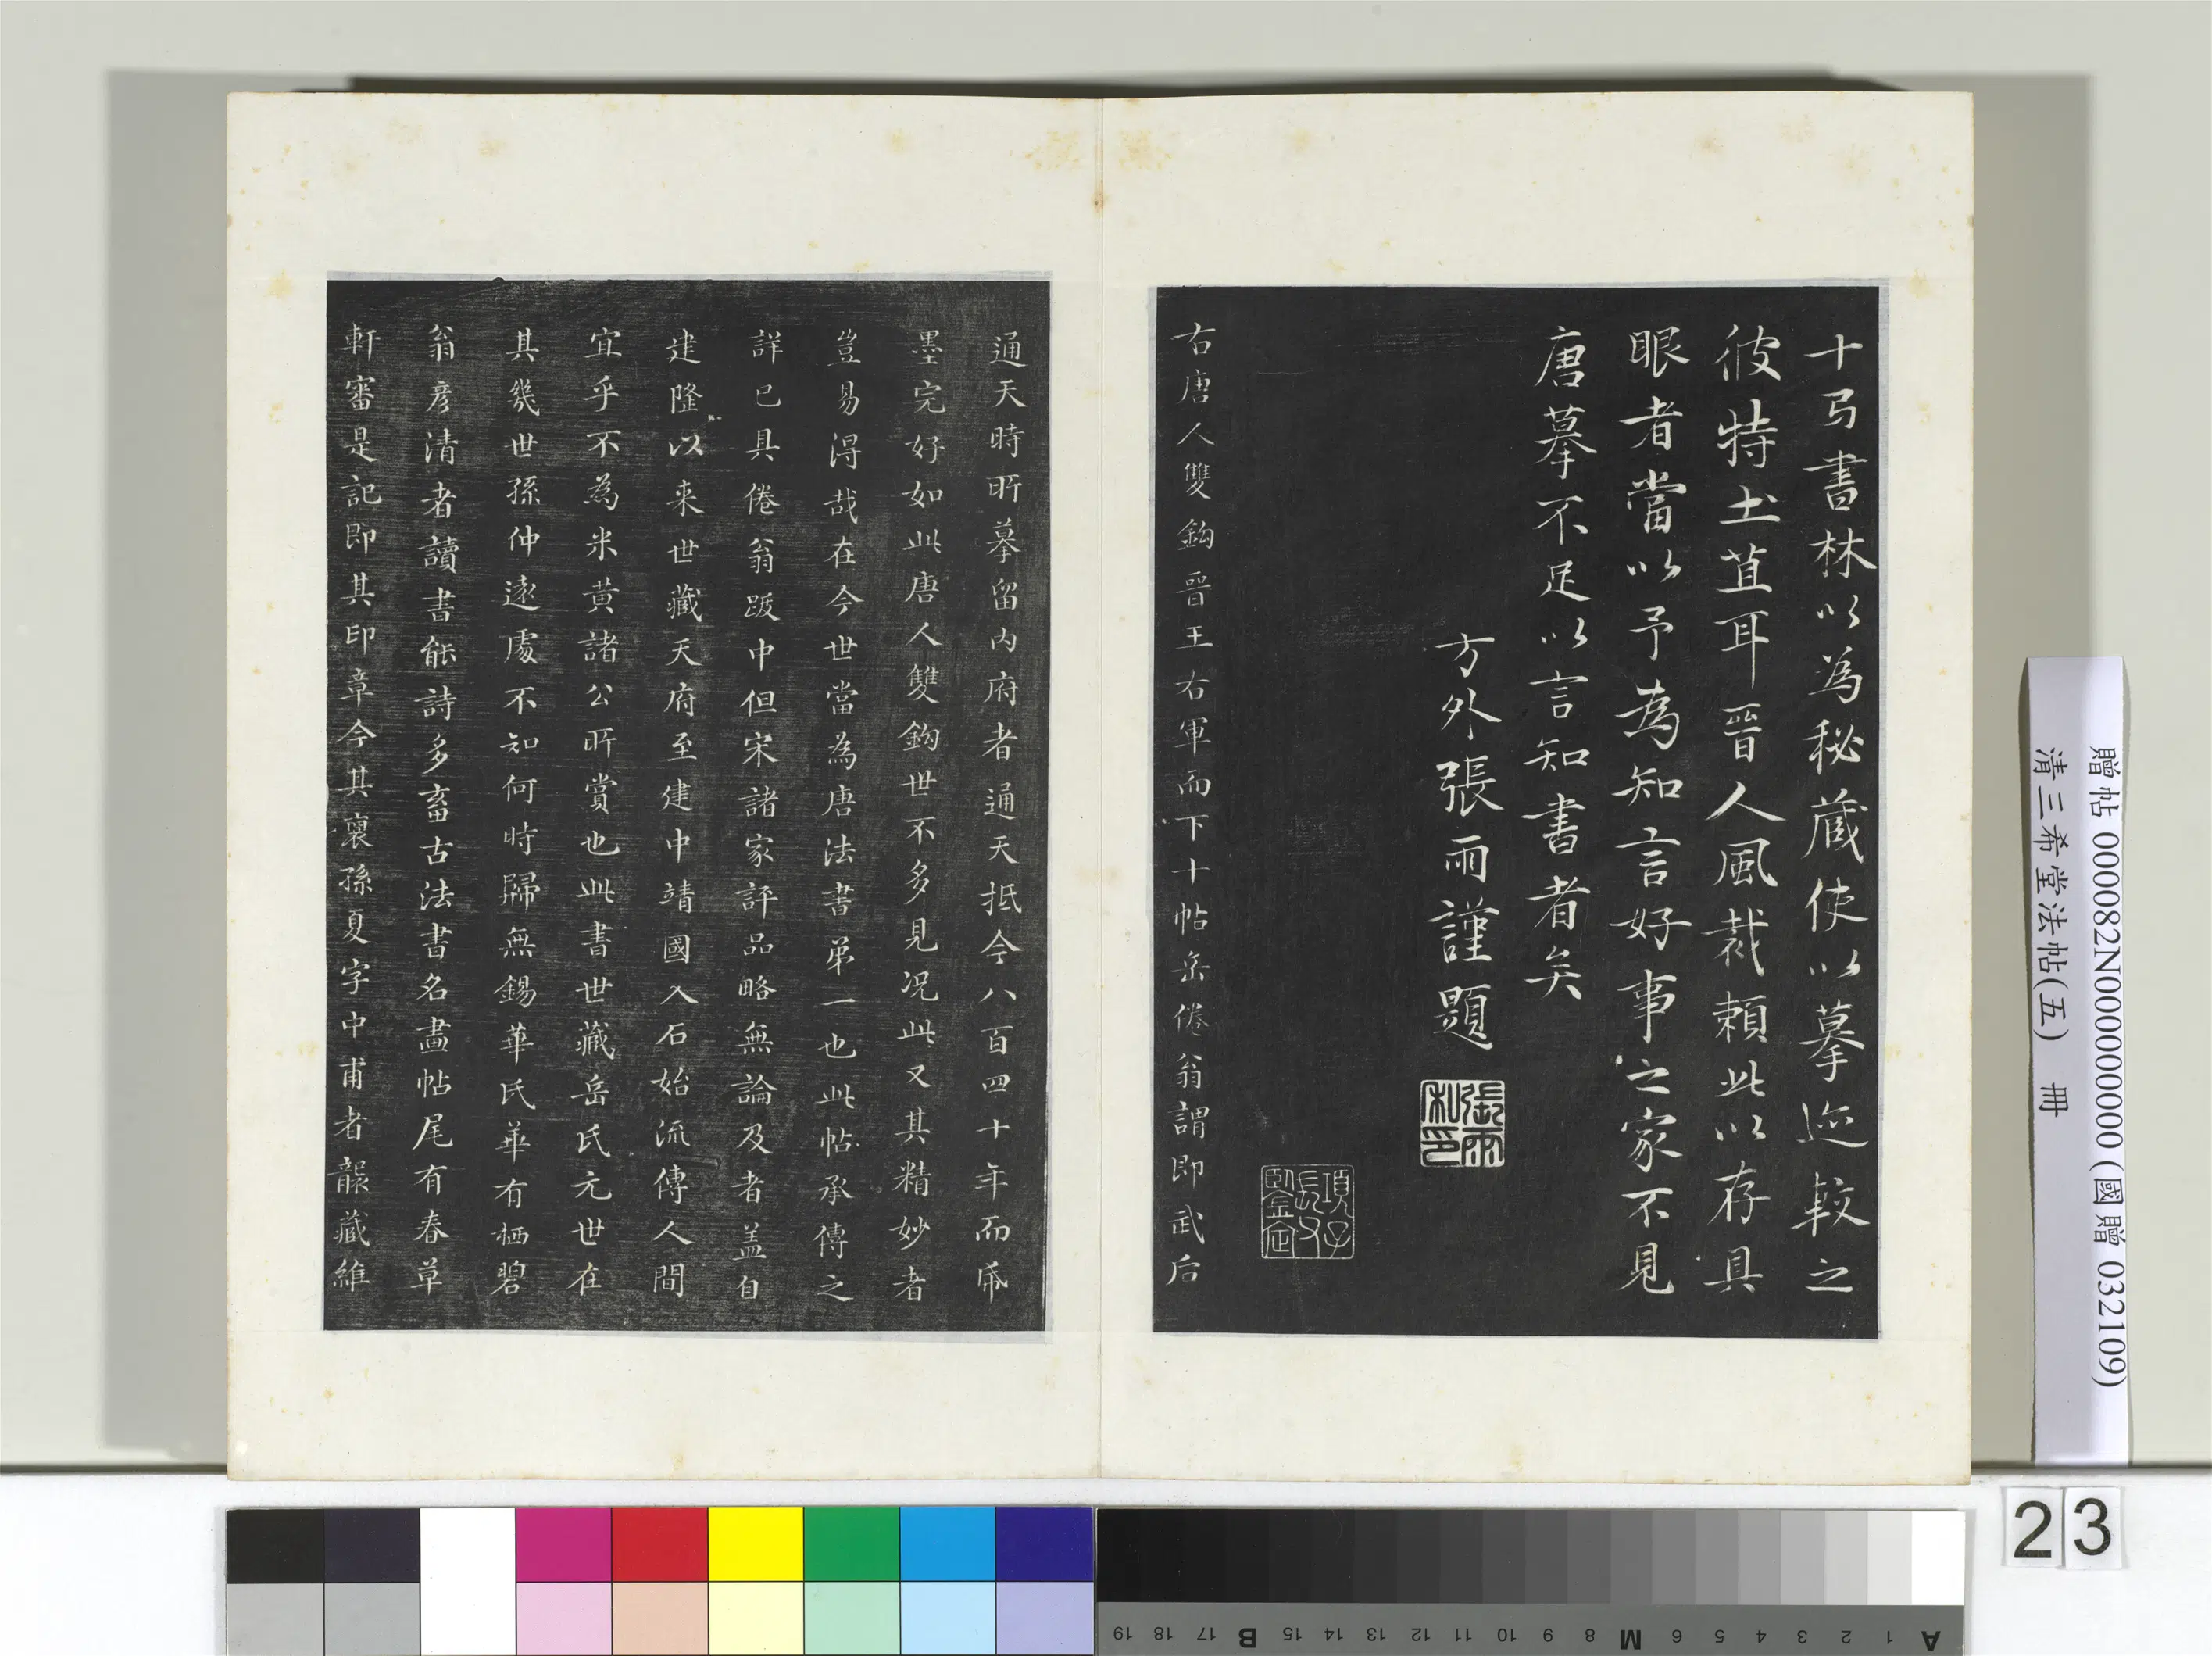 十弓書林以為秘蔵使以摹迹較之
彼特土苴耳晉人風裁頼此以存具
眼者當以予為知言好事之家不見
唐摹不足以言知書者矣
方外張雨謹題
張雨私印
項子長父鑒定
右唐人雙鈎晉王右軍而下十帖岳倦翁謂即武后
通天時所摹留内府者通天抵今八百四十年而帋
墨完好如此唐人雙鈎世不多見况此又其精妙者
豈易得哉在今世當為唐法書弟一也此帖承傳之
詳已具倦翁跋中但宋諸家評品略無論及者盖自
建隆以来世藏天府至建中靖國入石始流傳人間
宜乎不為米黄諸公所賞也此書世藏岳氏元世在
其幾世孫仲遠處不知何時歸無錫華氏華有栖碧
翁彦清者讀書能詩多畜古法書名畫帖尾有春草
軒審是記即其印章今其裔孫夏字中甫者襲藏維
贈帖 000082N000000000 (國贈 032109)
清三希堂法帖(五) 冊
23
A 1 2 3 4 5 6 M 8 9 10 11 12 13 14 15 B 17 18 19